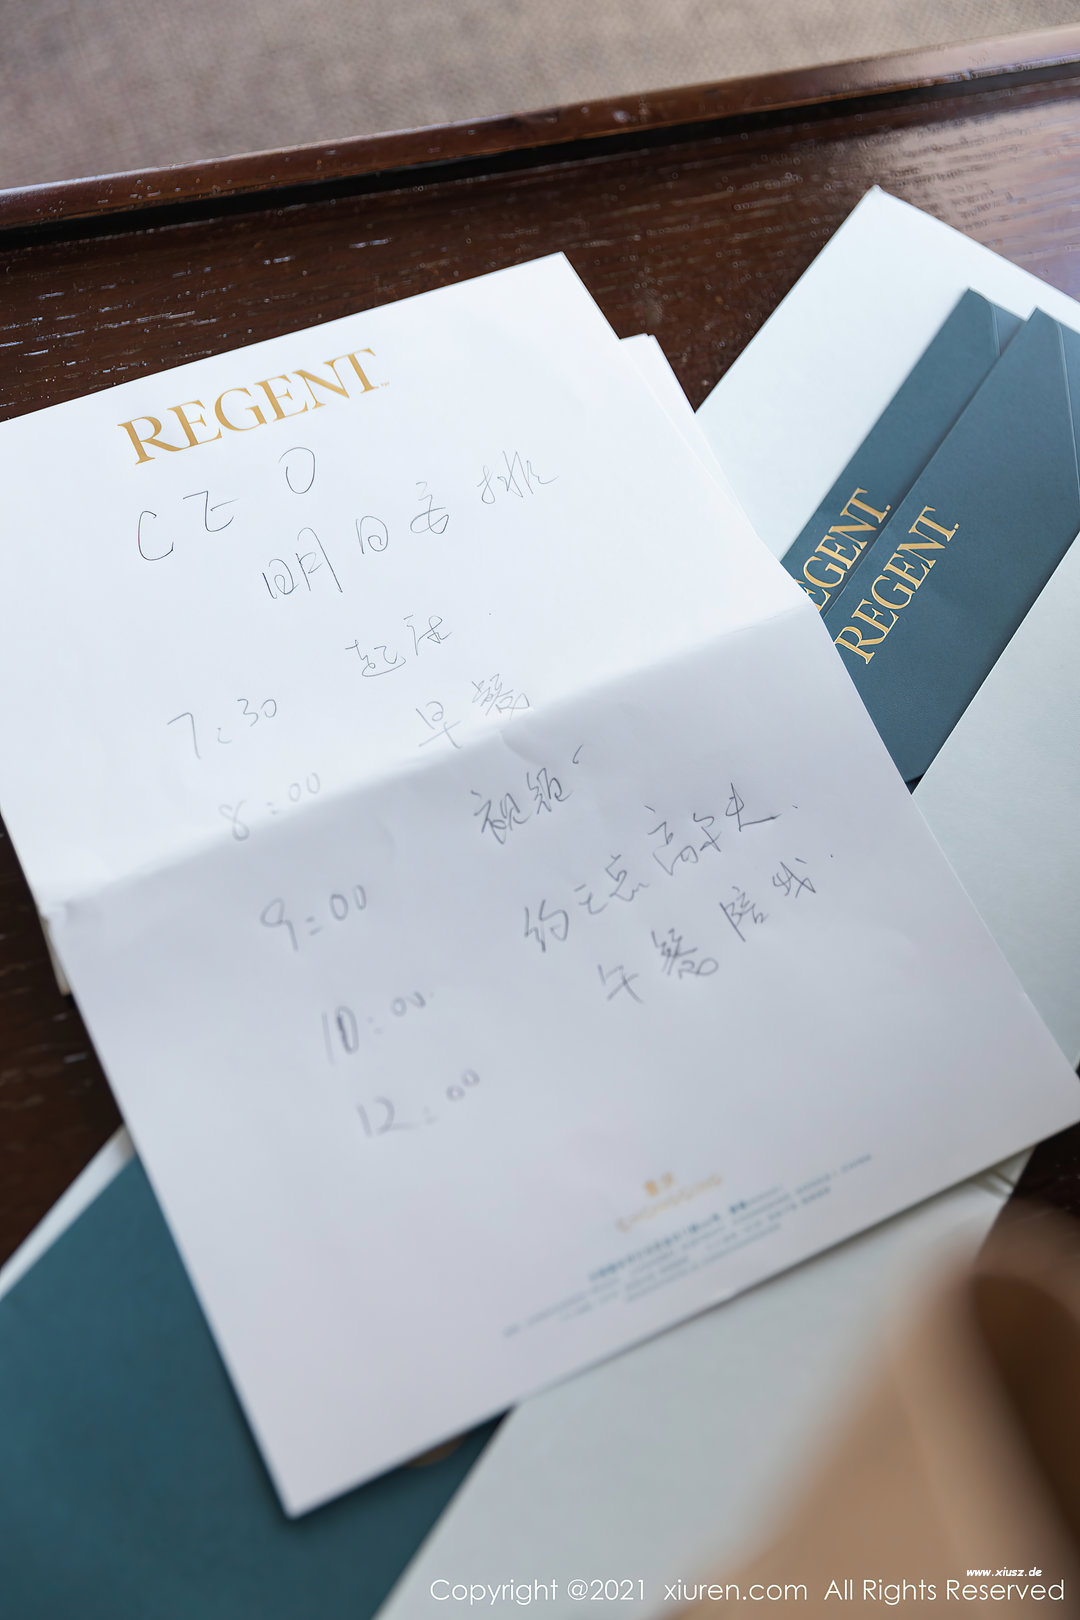 REGENT
CEO
明日安排
7:30 起床
8:00 早餐
9:00 视频
10:00 约王总高尔夫
12:00 午餐陪我
REGENT
REGENT
重庆
CHONGQING
www.xiusz.de
Copyright @2021 xiuren.com All Rights Reserved